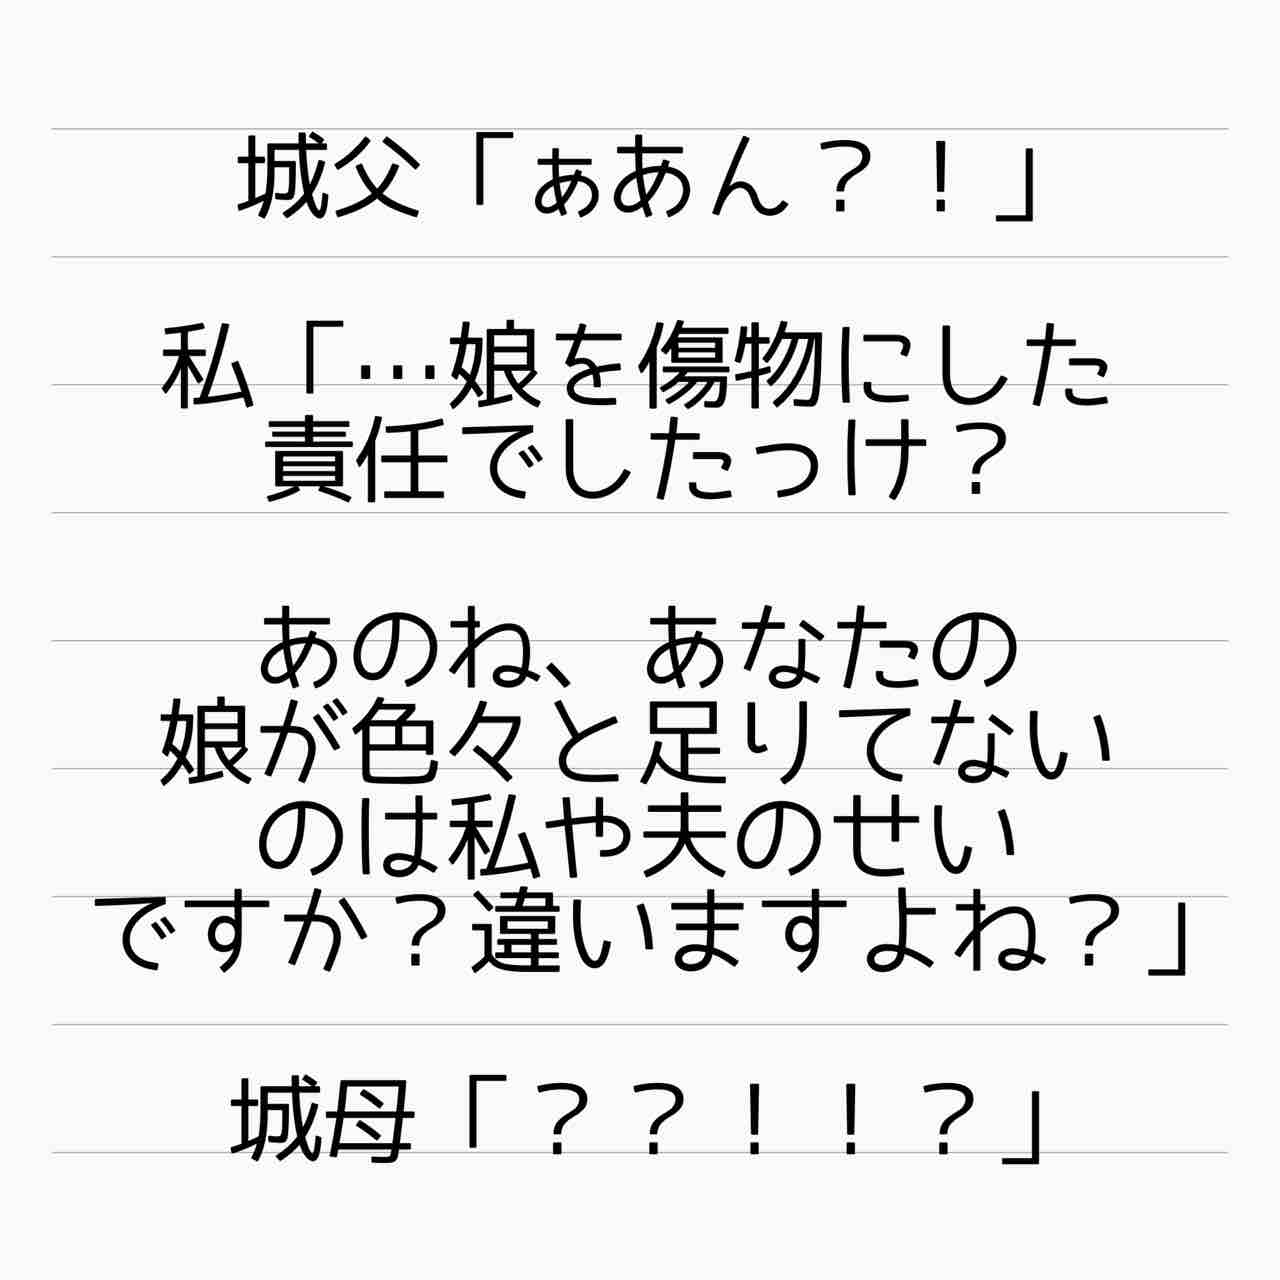 城父「ぁあん？！」
私「…娘を傷物にした
責任でしたっけ？
あのね、あなたの
娘が色々と足りてない
のは私や夫のせい
ですか？違いますよね？」
城母「？？！！？」